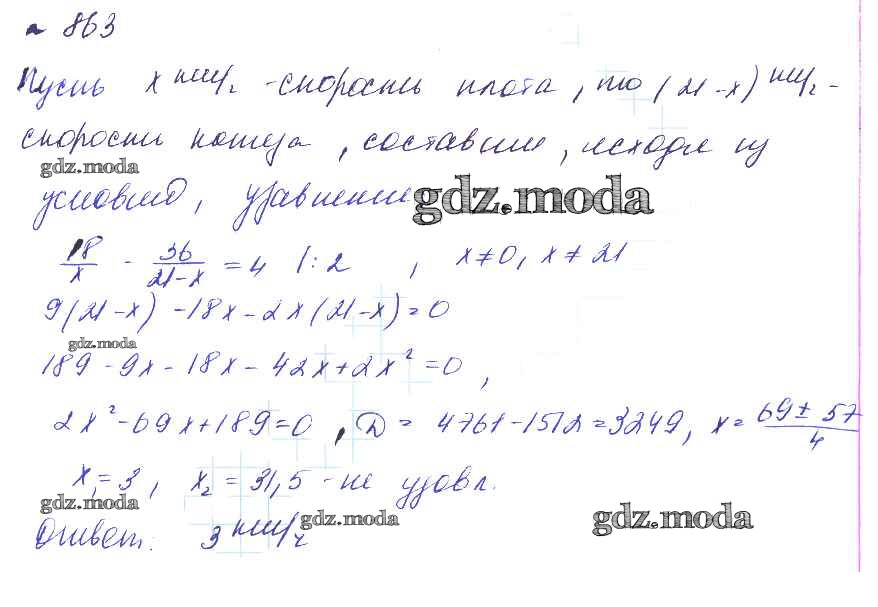 № 863
Пусть x км/ч - скорость плота, то (21-x) км/ч -
скорость катера, составим, исходя из
gdz.moda
условия, уравнение
gdz.moda
18/x - 36/(21-x) = 4 |:2 , x≠0, x≠21
9(21-x) -18x-2x(21-x)=0
gdz.moda
189-9x-18x-42x+2x²=0,
2x²-69x+189=0, D = 4761-1512=3249, x= (69±57)/4
x₁=3, x₂=31,5 - не удовл.
gdz.moda
gdz.moda
gdz.moda
Ответ: 3 км/ч